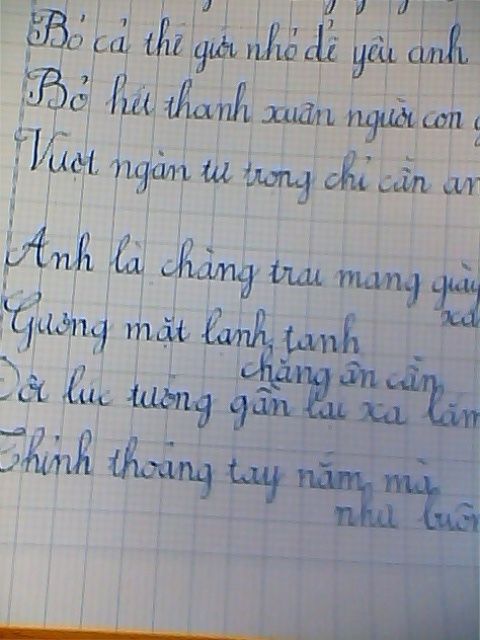 Bỏ cả thế giới nhỏ để yêu anh
Bỏ hết thanh xuân người con
Vượt ngàn tư trong chỉ cần
Anh là chàng trai mang giày
Gương mặt lanh tanh
chẳng ân cần
Đôi lúc tưởng gần lại xa lắm
Thỉnh thoảng tay nắm mà
như